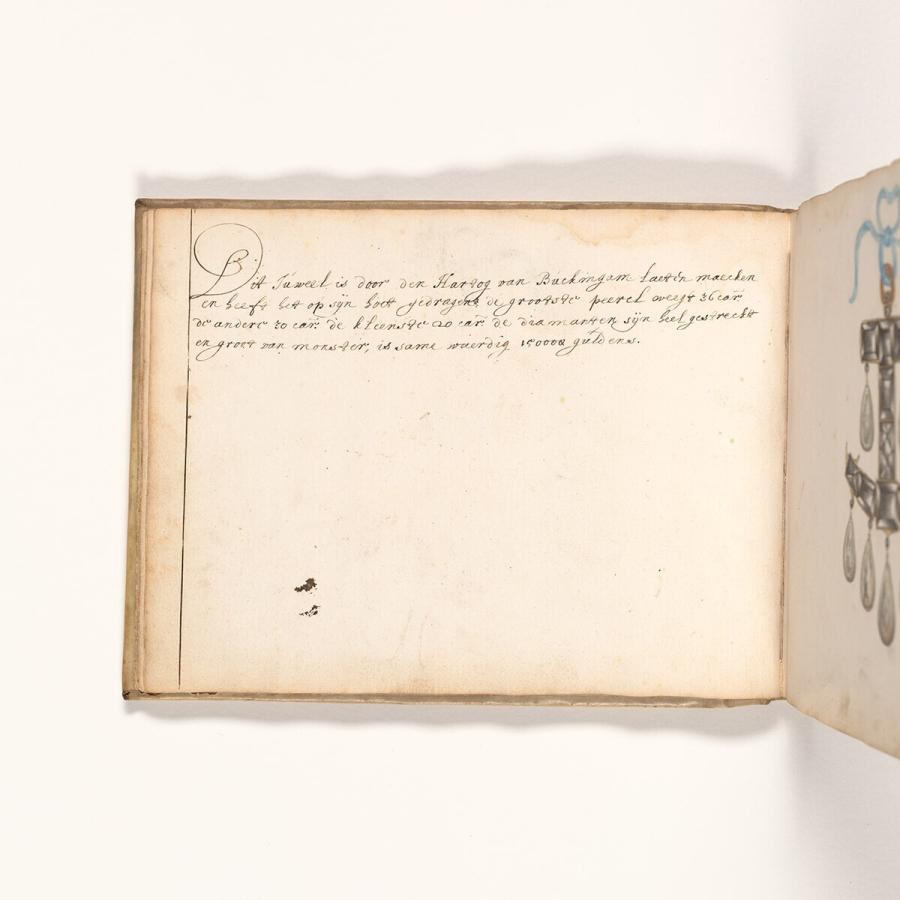 Dit Juweel is door den Hartog van Buckingam laeten maecken
en heeft het op sijn hoet gedragen de grootste peerel weegt 36 car̃
de andere 30 car̃ de kleenste 20 car̃ de diamanten sijn heel gestreckt
en groot van monster, is same waerdig 150000 guldens.